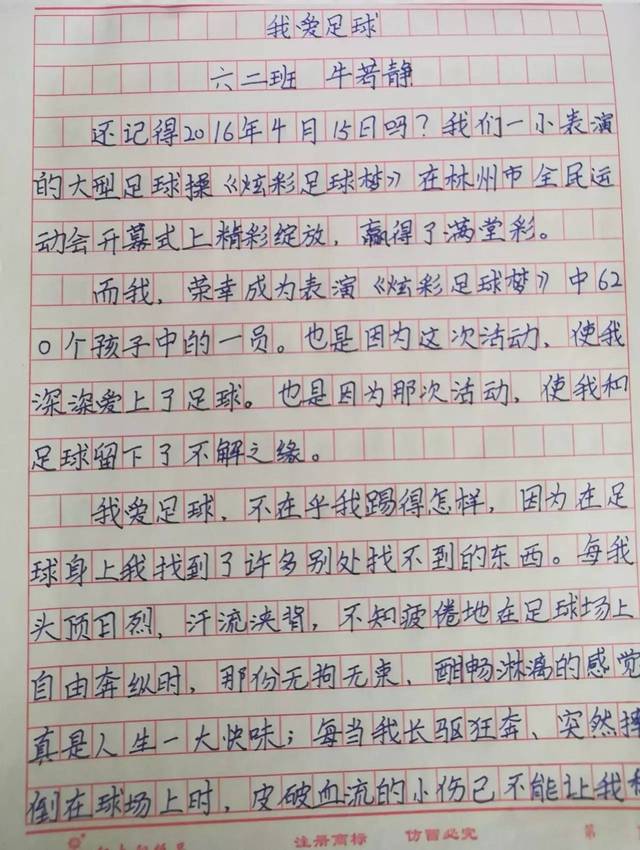 我爱足球
六二班 牛若静
还记得2016年4月15日吗？我们一小表演
的大型足球操《炫彩足球梦》在林州市全民运
动会开幕式上精彩绽放，赢得了满堂彩。
而我，荣幸成为表演《炫彩足球梦》中62
0个孩子中的一员。也是因为这次活动，使我
深深爱上了足球。也是因为那次活动，使我和
足球留下了不解之缘。
我爱足球，不在乎我踢得怎样，因为在足
球身上我找到了许多别处找不到的东西。每我
头顶日烈，汗流浃背，不知疲倦地在足球场上
自由奔纵时，那份无拘无束，酣畅淋漓的感觉
真是人生一大快味；每当我长驱狂奔、突然摔
倒在球场上时，皮破血流的小伤已不能让我
注册商标 仿冒必究
第